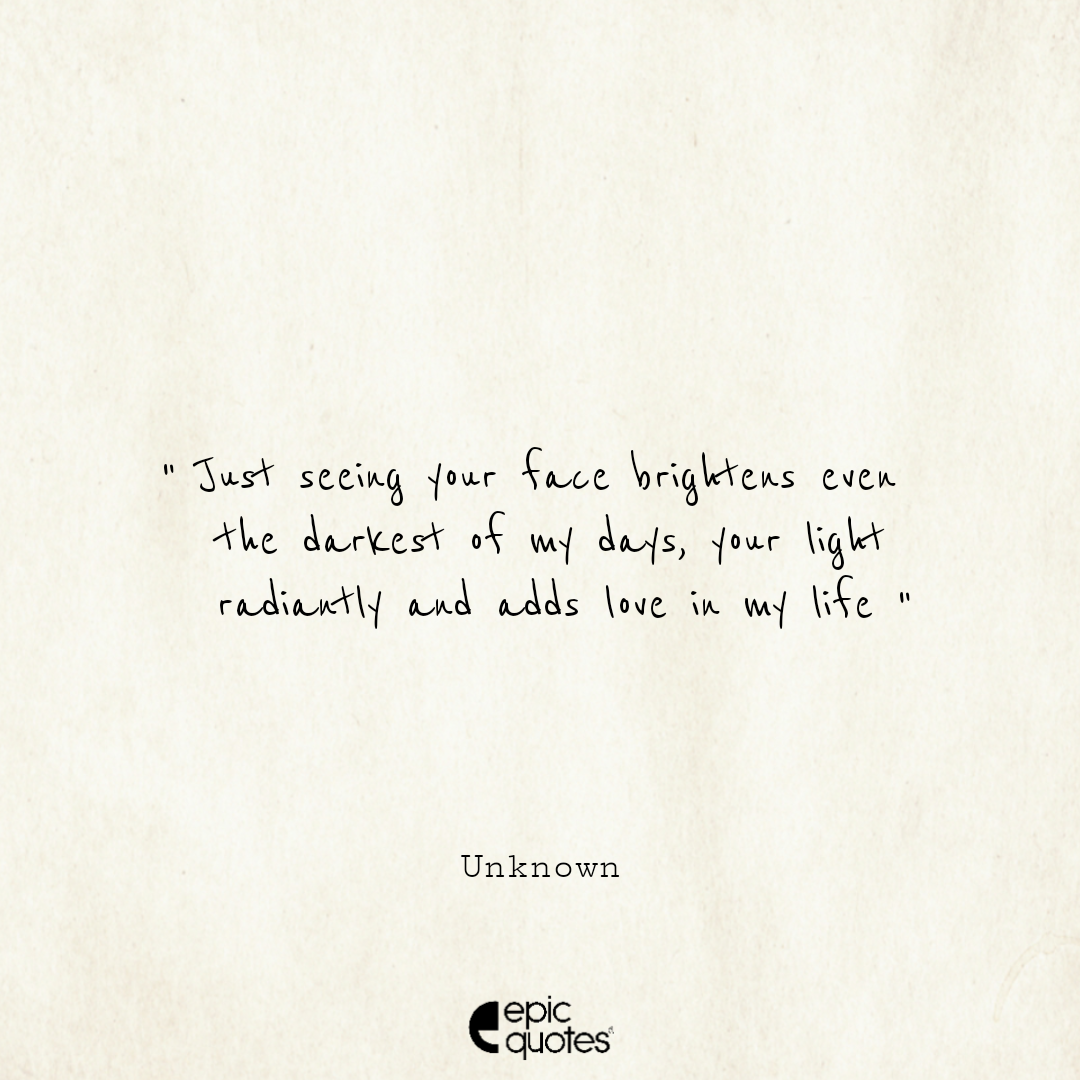 " Just seeing your face brightens even
the darkest of my days, your light
radiantly and adds love in my life "
Unknown
epic
quotes